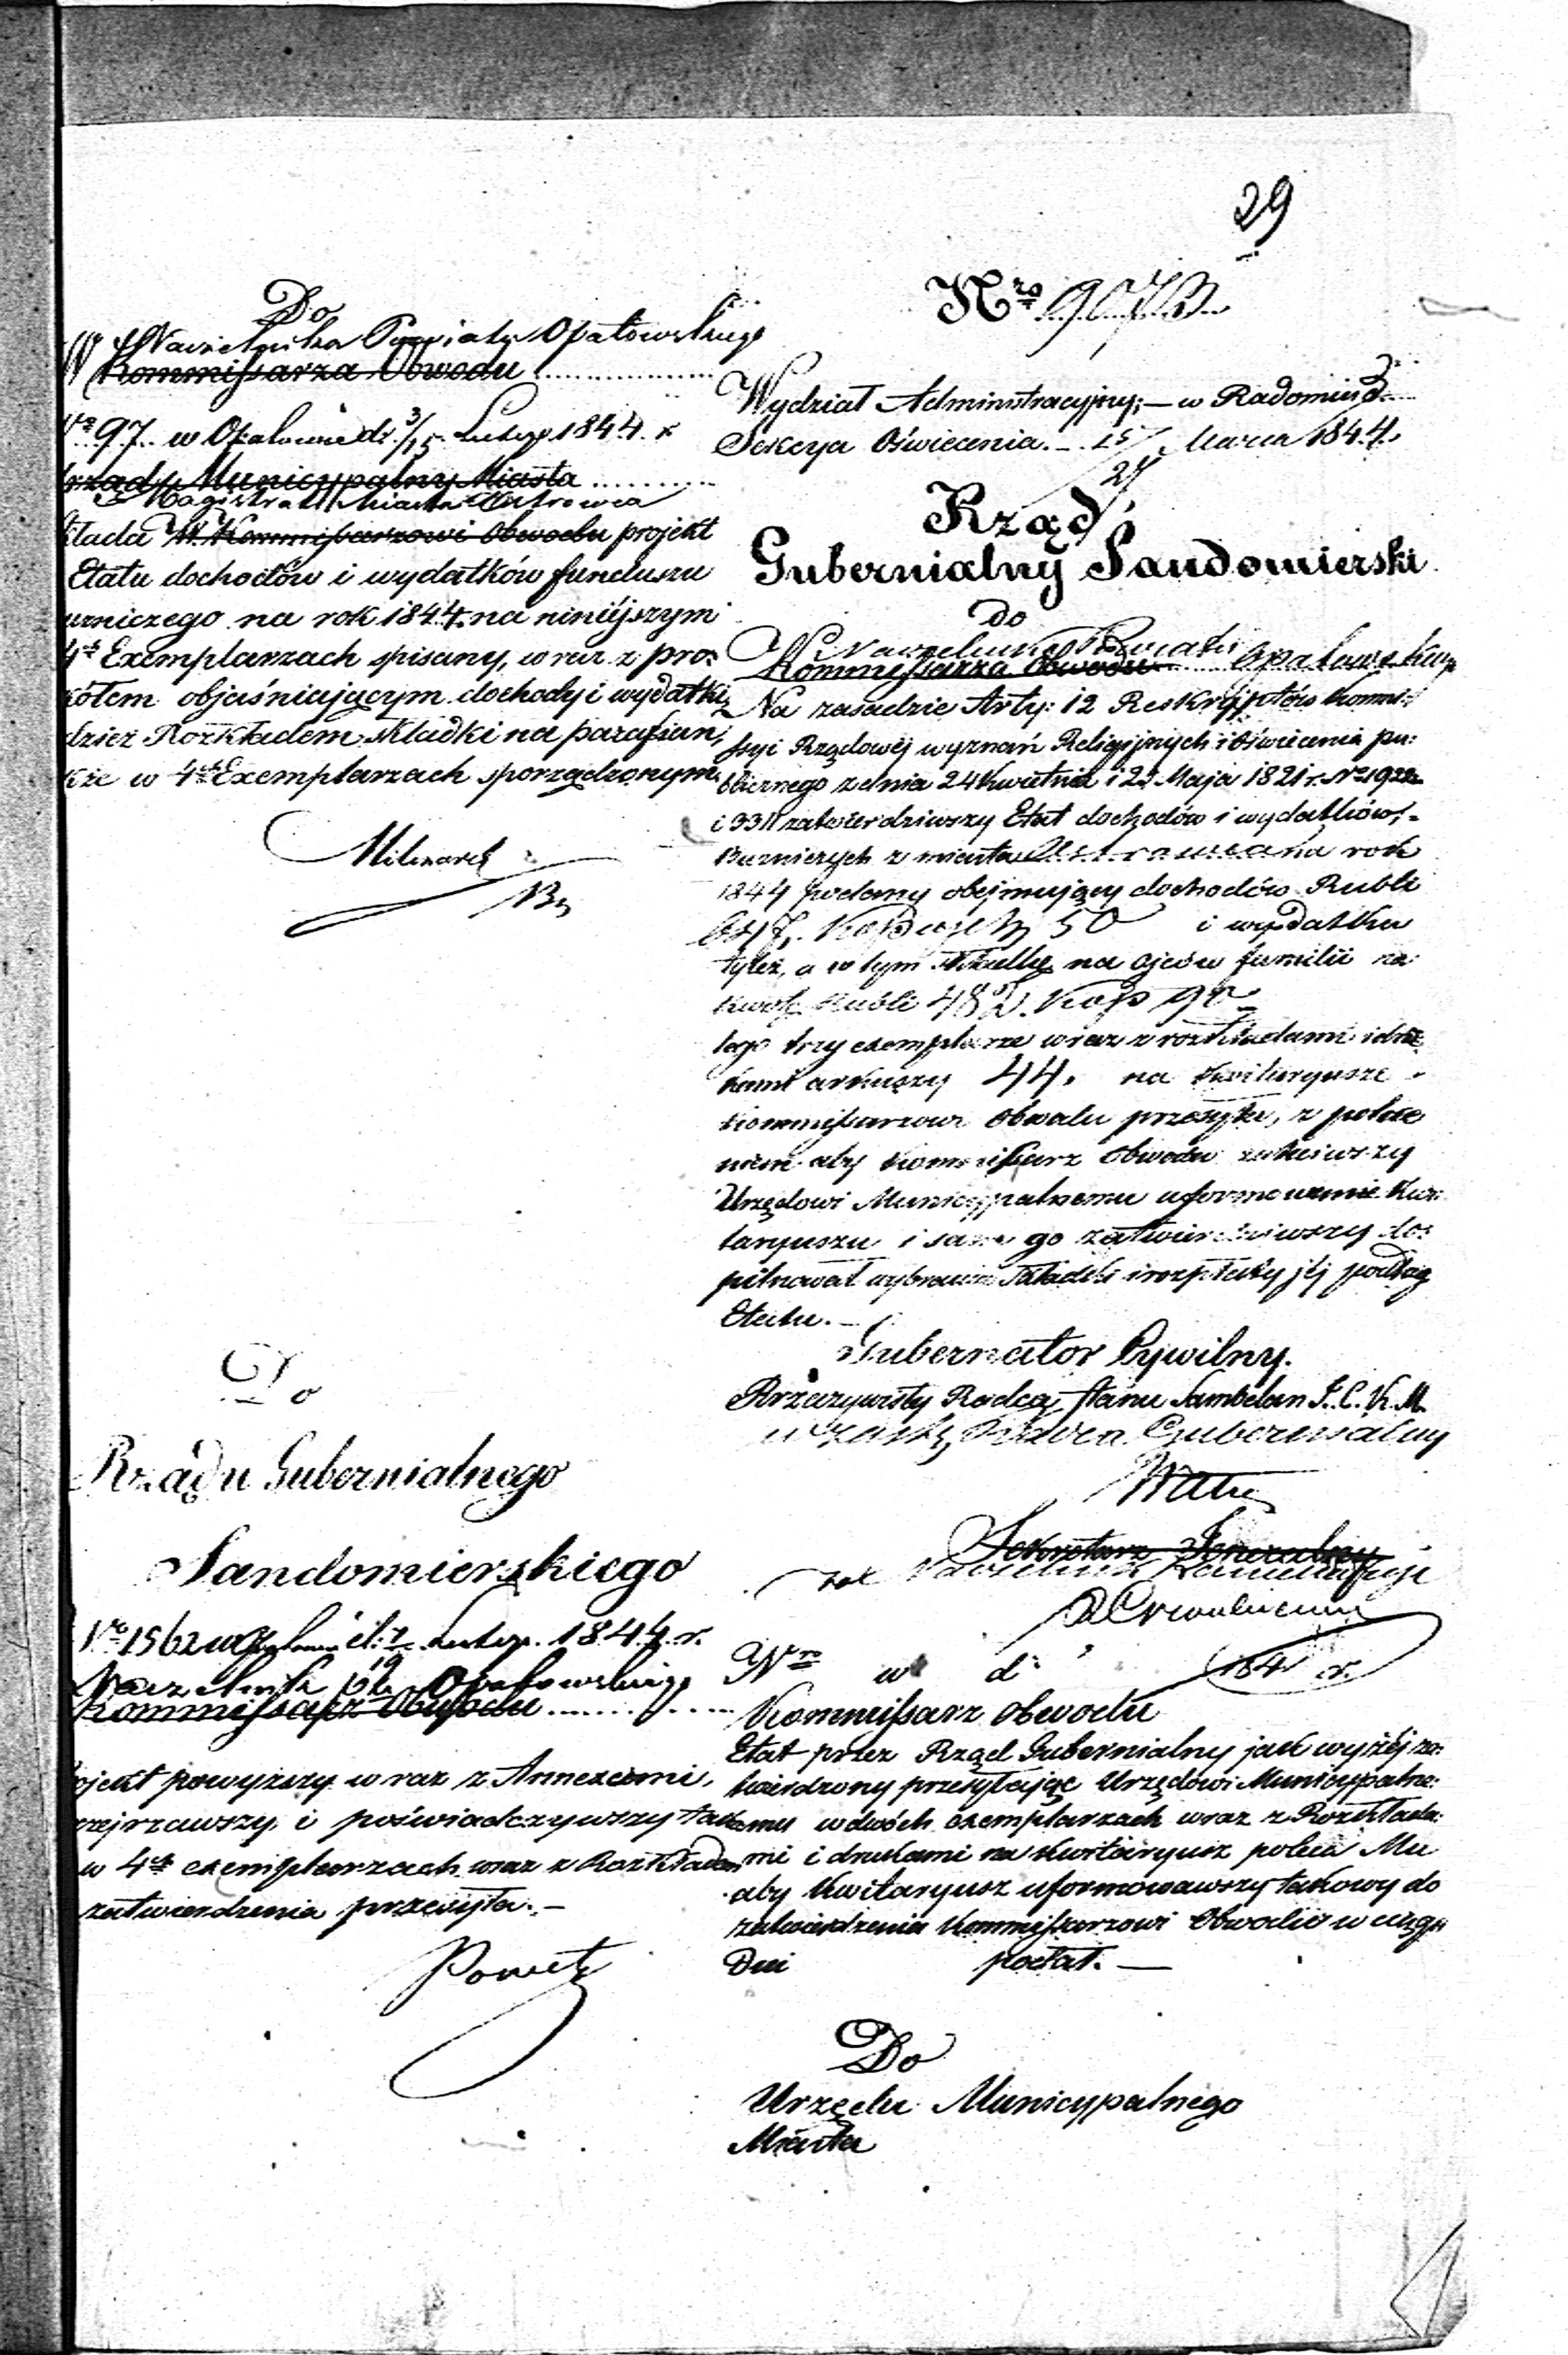 29
Do
Naczelnika Powiatu Opatowskiego
W Kommissarza Obwodu
97 w Opatowie d. 3/15 Lutego 1844 r
Municypalny Miasta
Magistrat Miasta Ostrowca
kłada W. Kommissarzowi Obwodu projekt
Etatu dochodów i wydatków funduszu
urniczego na rok 1844. na niniéjszym
4ch Exemplarzach spisany, wraz z pro:
kółem objaśniającym dochody i wydatki,
dzież Rozkładem składki na parafian,
kże w 4ch Exemplarzach sporządzonym.
Do
Rządu Gubernialnego
Sandomierskiego
Nro 1562 w Opatowie d. Lutego 1844 r.
Naczelnik Opatowskiego
Kommissarz Obwodu
ojekt powyższy wraz z Annexami,
rzejrzawszy i poświadczywszy tak
w 4ch exemplarzach wraz z Rozkładem
zatwierdzenia przesyła.—
Nro 9073
Wydział Administracyjny;— w Radomiu d.
Sekcya Oświecenia.— 15/27 Marca 1844.
Rząd
Gubernialny Sandomierski
do
Naczelnika Powiatu
Kommissarza Obwodu Opatowskiego
Na zasadzie Arty: 12 Reskryptów Kommi:
ssyi Rządowéj wyznań Religijnych i Oświecenia pu:
blicznego z dnia 24 Kwietnia i 22 Maja 1821 r. Nro 1922
i 3311 zatwierdziwszy Etat dochodów i wydatków
Burniczych z miasta Ostrowca na rok
1844 podany obejmujący dochodów Rubli
Kopiejek 50 i wydatku
tyleż, a w tym składkę na ojców familii na
kwotę Rubli 482. Kop 90
tego trzy exemplarze wraz z rozkładami i dru
kami arkuszy 44. na Kwitaryusze
Kommissarzowi Obwodu przesyła, z polece
niem aby Kommissarz Obwodu zaleciwszy
Urzędowi Municypalnemu uformowanie Kwi:
taryuszu i sam go zatwierdziwszy do:
pilnował wybrania składki i rozpłaty jéj podług
Etatu.—
Gubernator Cywilny.
Rzeczywisty Radca Stanu Szambelan J. C. K. M.
w zast. Radca Gubernialny
Sekretarz Jeneralny
za Naczelnik Kancellaryi
Nro w d. 184 r.
Kommissarz Obwodu
Etat przez Rząd Gubernialny jak wyżéj za:
twierdzony przesyłając Urzędowi Municypalne:
mu w dwóch exemplarzach wraz z Rozkłada:
mi i drukami na Kwitaryusz poleca Mu
aby Kwitaryusz uformowawszy takowy do
zatwierdzenia Kommissarzowi Obwodu w ciągu
Dni podał.—
Do
Urzędu Municypalnego
Miasta